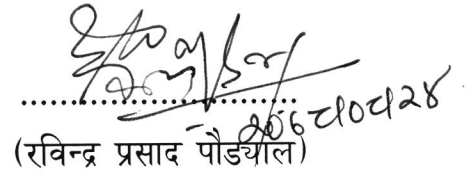 ..............................
२०६८।०८।२४
(रविन्द्र प्रसाद पौड्याल)